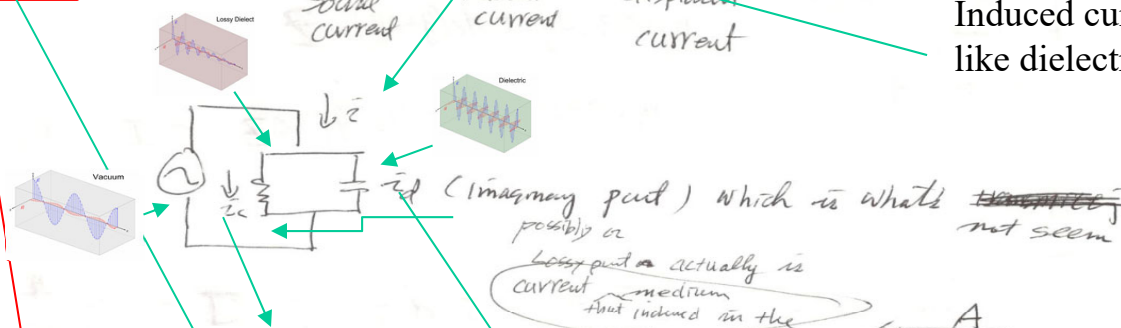 Lossy Dielect
current
current
current
Induced cu
like dielect
i
Dielectric
Vacuum
i_c
i_d (imaginary part) which is what's
not seem
possibly or
part actually is
current medium
that induced in the
A